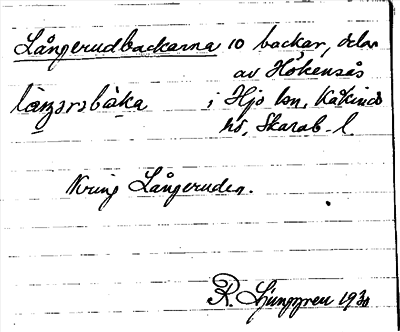 Långerudbackarna 10 backar, delar
av Hökensås
làngərəbàka i Hjo lsn, Kåkinds
hd, Skarab. l.
Kring Långeruden.
R. Ljunggren 1930